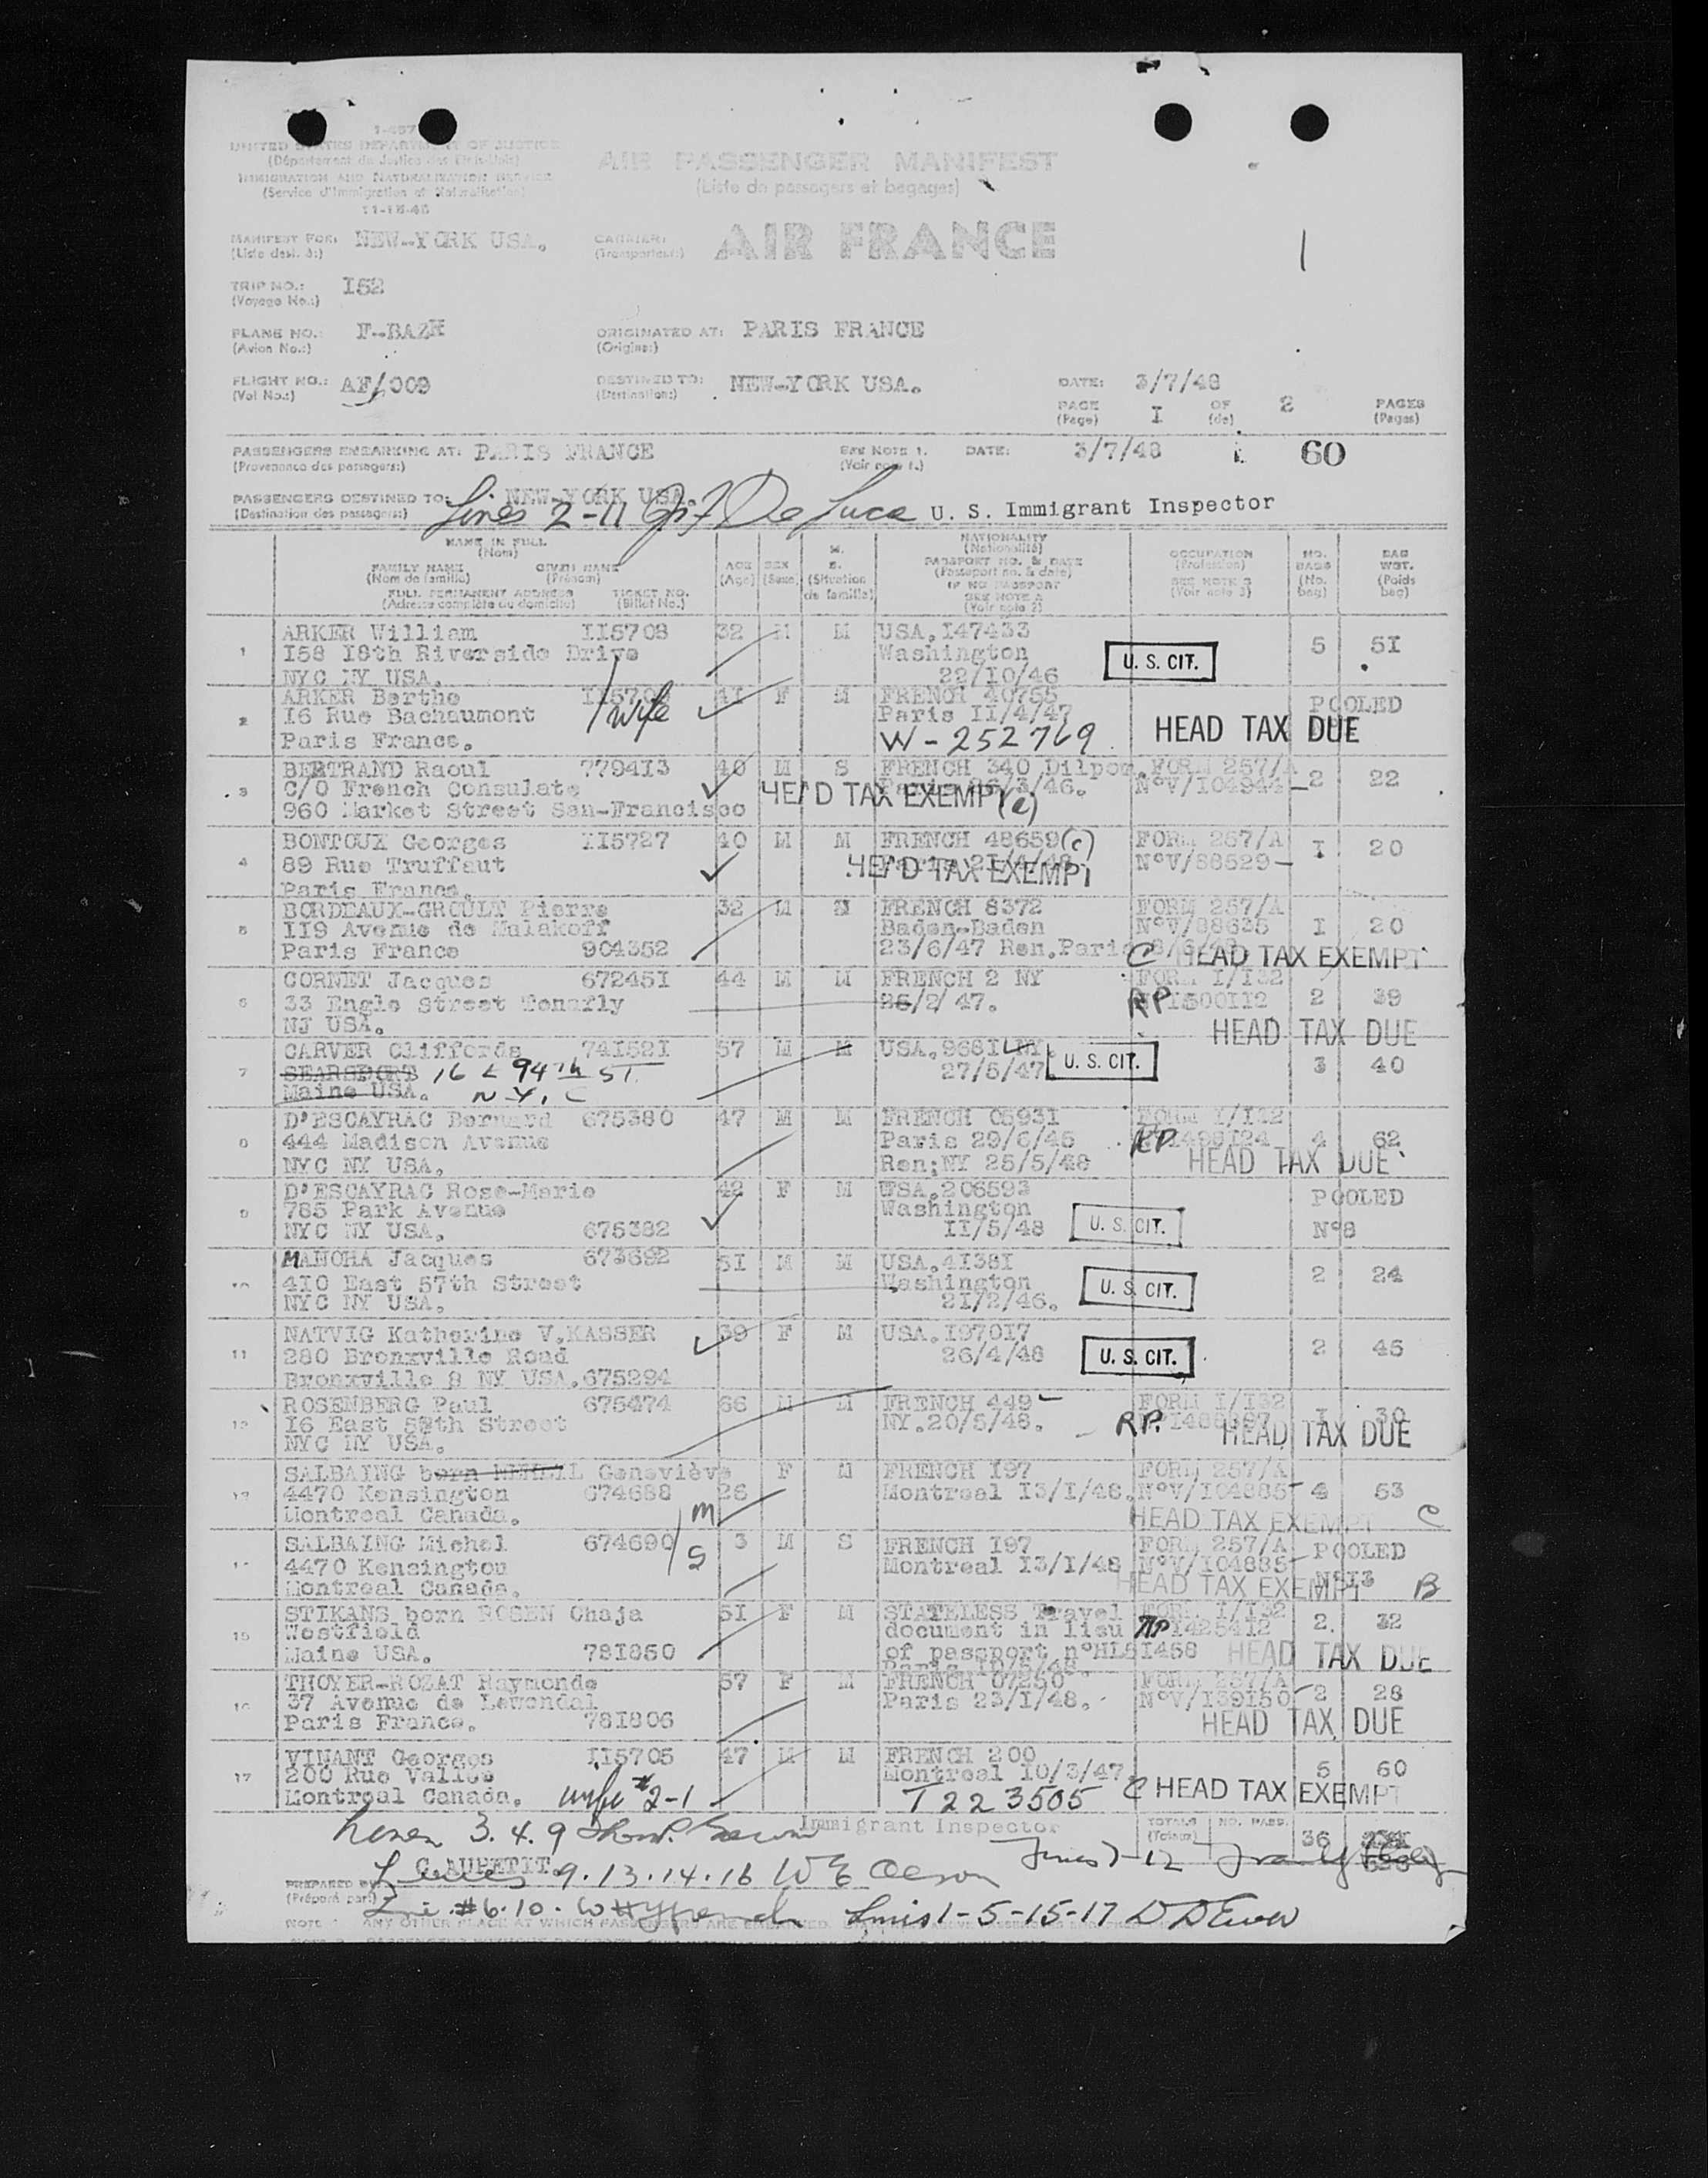 1-457
UNITED STATES DEPARTMENT OF JUSTICE
(Département de Justice des Etats-Unis)
IMMIGRATION AND NATURALIZATION SERVICE
(Service d'Immigration et Naturalisation)
11-18-45
AIR PASSENGER MANIFEST
(Liste de passagers et bagages)
MANIFEST FOR: NEW-YORK USA.
(Liste dest. à:)
CARRIER: AIR FRANCE
(Transporteur:)
TRIP NO.: I52
(Voyage No.:)
PLANE NO.: F-BAZH
(Avion No.:)
ORIGINATED AT: PARIS FRANCE
(Origine:)
FLIGHT NO.: AF/009
(Vol No.:)
DESTINED TO: NEW-YORK USA.
(Destination:)
DATE: 3/7/48
PAGE I OF 2 PAGES
(Page) (de) (Pages)
PASSENGERS EMBARKING AT: PARIS FRANCE
(Provenance des passagers:)
SEE NOTE 1. DATE: 3/7/48 60
(Voir note 1.)
PASSENGERS DESTINED TO: NEW-YORK USA.
(Destination des passagers:)
Lines 2-11 De Luca U. S. Immigrant Inspector
NAME IN FULL
(Nom)
FAMILY NAME GIVEN NAME
(Nom de famille) (Prénom)
FULL PERMANENT ADDRESS TICKET NO.
(Adresse complète du domicile) (Billet No.)
AGE
(Age)
SEX
(Sexe)
M.
S.
(Situation de famille)
NATIONALITY
(Nationalité)
PASSPORT NO. & DATE
(Passeport no. & date)
IF NO PASSPORT
SEE NOTE
(Voir note 2)
OCCUPATION
(Profession)
SEE NOTE 3
(Voir note 3)
NO. BAGS
(No. bag)
BAG WGT.
(Poids bag)
1 ARKER William II5708 32 M M USA.I47433 5 5I
I58 I8th Riverside Drive Washington U. S. CIT.
NYC NY USA. 22/I0/46
2 ARKER Berthe 4I F M FRENCH 40755 POOLED
I6 Rue Bachaumont wife Paris II/4/47 HEAD TAX DUE
Paris France. W-252769
3 BERTRAND Raoul 7794I3 40 M S FRENCH 340 Dilpom. FORM 257/A 2 22
C/O French Consulate Paris 26/3/46. N°V/I04944
960 Market Street San-Francisco HEAD TAX EXEMPT
4 BONTOUX Georges II5727 40 M M FRENCH 48659 (c) FORM 257/A I 20
89 Rue Truffaut HEAD TAX EXEMPT N°V/88529
Paris France.
5 BORDEAUX-GROULT Pierre 32 M M FRENCH 8372 FORM 257/A I 20
II9 Avenue de Malakoff Baden-Baden N°V/88635
Paris France 904352 23/6/47 Ren.Paris C HEAD TAX EXEMPT
6 CORNET Jacques 67245I 44 M M FRENCH 2 NY FORM I/I32 2 39
33 Engle Street Tenafly 26/2/47. RP I500II2
NJ USA. HEAD TAX DUE
7 CARVER Clifforda 74I52I 57 M M USA.968I NY. 3 40
SEARSPORT 16 E 94th ST. 27/5/47 U. S. CIT.
Maine USA. N.Y.C
8 D'ESCAYRAC Bernard 675380 47 M M FRENCH 05931 FORM I/I32 4 62
444 Madison Avenue Paris 29/6/45 RP
NYC NY USA. Ren;NY 25/5/48 HEAD TAX DUE
9 D'ESCAYRAC Rose-Marie 42 F M USA.206593 POOLED
785 Park Avenue Washington N°8
NYC NY USA. 675382 II/5/48 U. S. CIT.
10 MANOHA Jacques 673692 5I M M USA.4I38I 2 24
4I0 East 57th Street Washington U. S. CIT.
NYC NY USA. 2I/2/46.
11 NATVIG Katherine V.KASSER 39 F M USA.I970I7 2 45
280 Bronxville Road 26/4/48 U. S. CIT.
Bronxville 8 NY USA.675294
12 ROSENBERG Paul 675474 66 M M FRENCH 449 FORM I/I32 I 30
I6 East 58th Street NY.20/5/48. RP.
NYC NY USA. HEAD TAX DUE
13 SALBAING born Geneviève F M FRENCH I97 FORM 257/A
4470 Kensington 674688 26 Montreal I3/I/48. N°V/I04885 4 53
Montreal Canada. M HEAD TAX EXEMPT C
14 SALBAING Michel 674690 3 M S FRENCH I97 FORM 257/A POOLED
4470 Kensington S Montreal I3/I/48 N°V/I04885 N°I3
Montreal Canada. HEAD TAX EXEMPT B
15 STIKANS born ROSEN Chaja 5I F M STATELESS Travel FORM I/I32 2 32
Westfield document in lieu RP I4254I2
Maine USA. 78I850 of passport n°HL5I458 HEAD TAX DUE
16 THOYER-ROZAT Raymonde 57 F M FRENCH 07260 FORM 257/A 2 28
37 Avenue de Lewendal Paris 23/I/48. N°V/I39I50
Paris France. 78I806 HEAD TAX DUE
17 VINANT Georges II5705 47 M M FRENCH 200 5 60
200 Rue Vallée Montreal I0/3/47
Montreal Canada. wife #2-1 T223505 C HEAD TAX EXEMPT
3.4.9 Immigrant Inspector
TOTALS NO. PASS. 36
(Totaux)
Lines 7-12
PREPARED BY: C.AUPETIT.
(Préparé par:)
Lines 9.13.14.16 W E Olson
#6.10. Lines 1-5-15-17